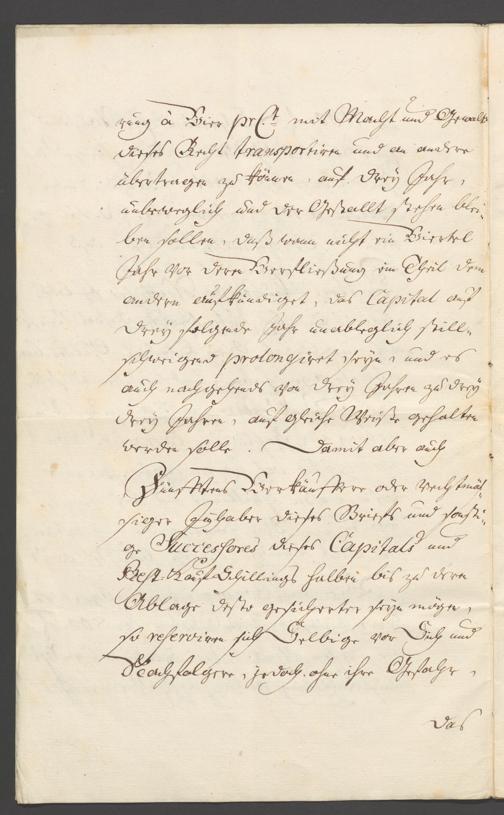 rung à Vier prCt. mit Macht und Gewalt
dieses Recht transportiren und an andere
übertragen zu können, auf Drey Jahr,
unbeweglich und der Gestallt stehen blei-
ben sollen, daß wann nicht ein Viertel
Jahr vor deren Verfließung ein Theil dem
andern aufkündiget, das Capital auf
Drey folgende Jahr unableglich still-
schweigend prolongiret seyn, und es
auch nachgehends von Drey Jahren zu drey
drey Jahren, auf gleiche Weiße gehalten
werden solle. Damit aber auch
Fünfftens Verkäuffere oder rechtmäs-
siger Inhaber dieses Briefs und sonsti-
ge Successores dieses Capitals und
Rest-Kauf Schillings halben bis zu deren
Ablage desto gesicherter seyn mögen,
so reserviren sich Selbige vor Sich und
Nachfolgere, jedoch ohne ihre Gefahr,
das